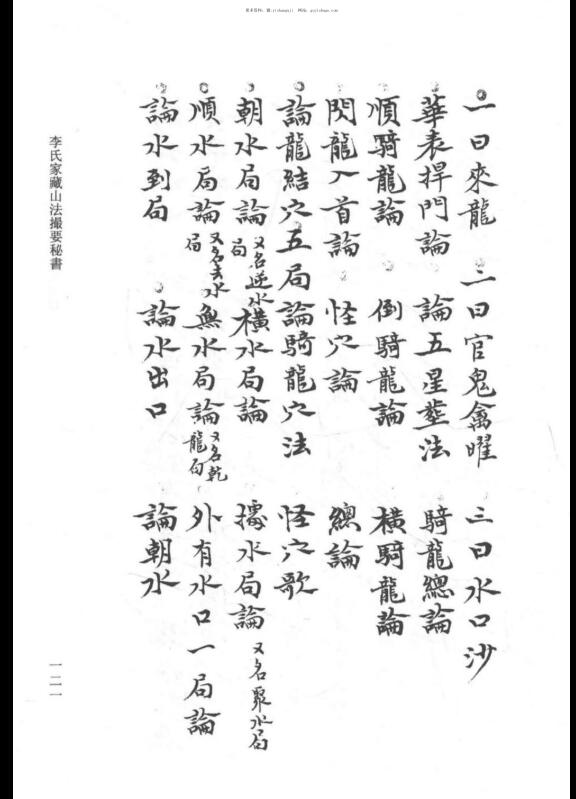 一曰來龍 二曰官鬼禽曜 三曰水口沙
華表捍門論 論五星塟法 騎龍總論
順騎龍論 倒騎龍論 橫騎龍論
閃龍入首論 怪穴論 總論
論龍結穴五局論騎龍穴法 怪穴歌
朝水局論又名逆水局 橫水局論 據水局論又名聚水局
順水局論又名去水局 無水局論又名乾龍局 外有水口一局論
論水到局 論水出口 論朝水
李氏家藏山法撮要秘書
一二一